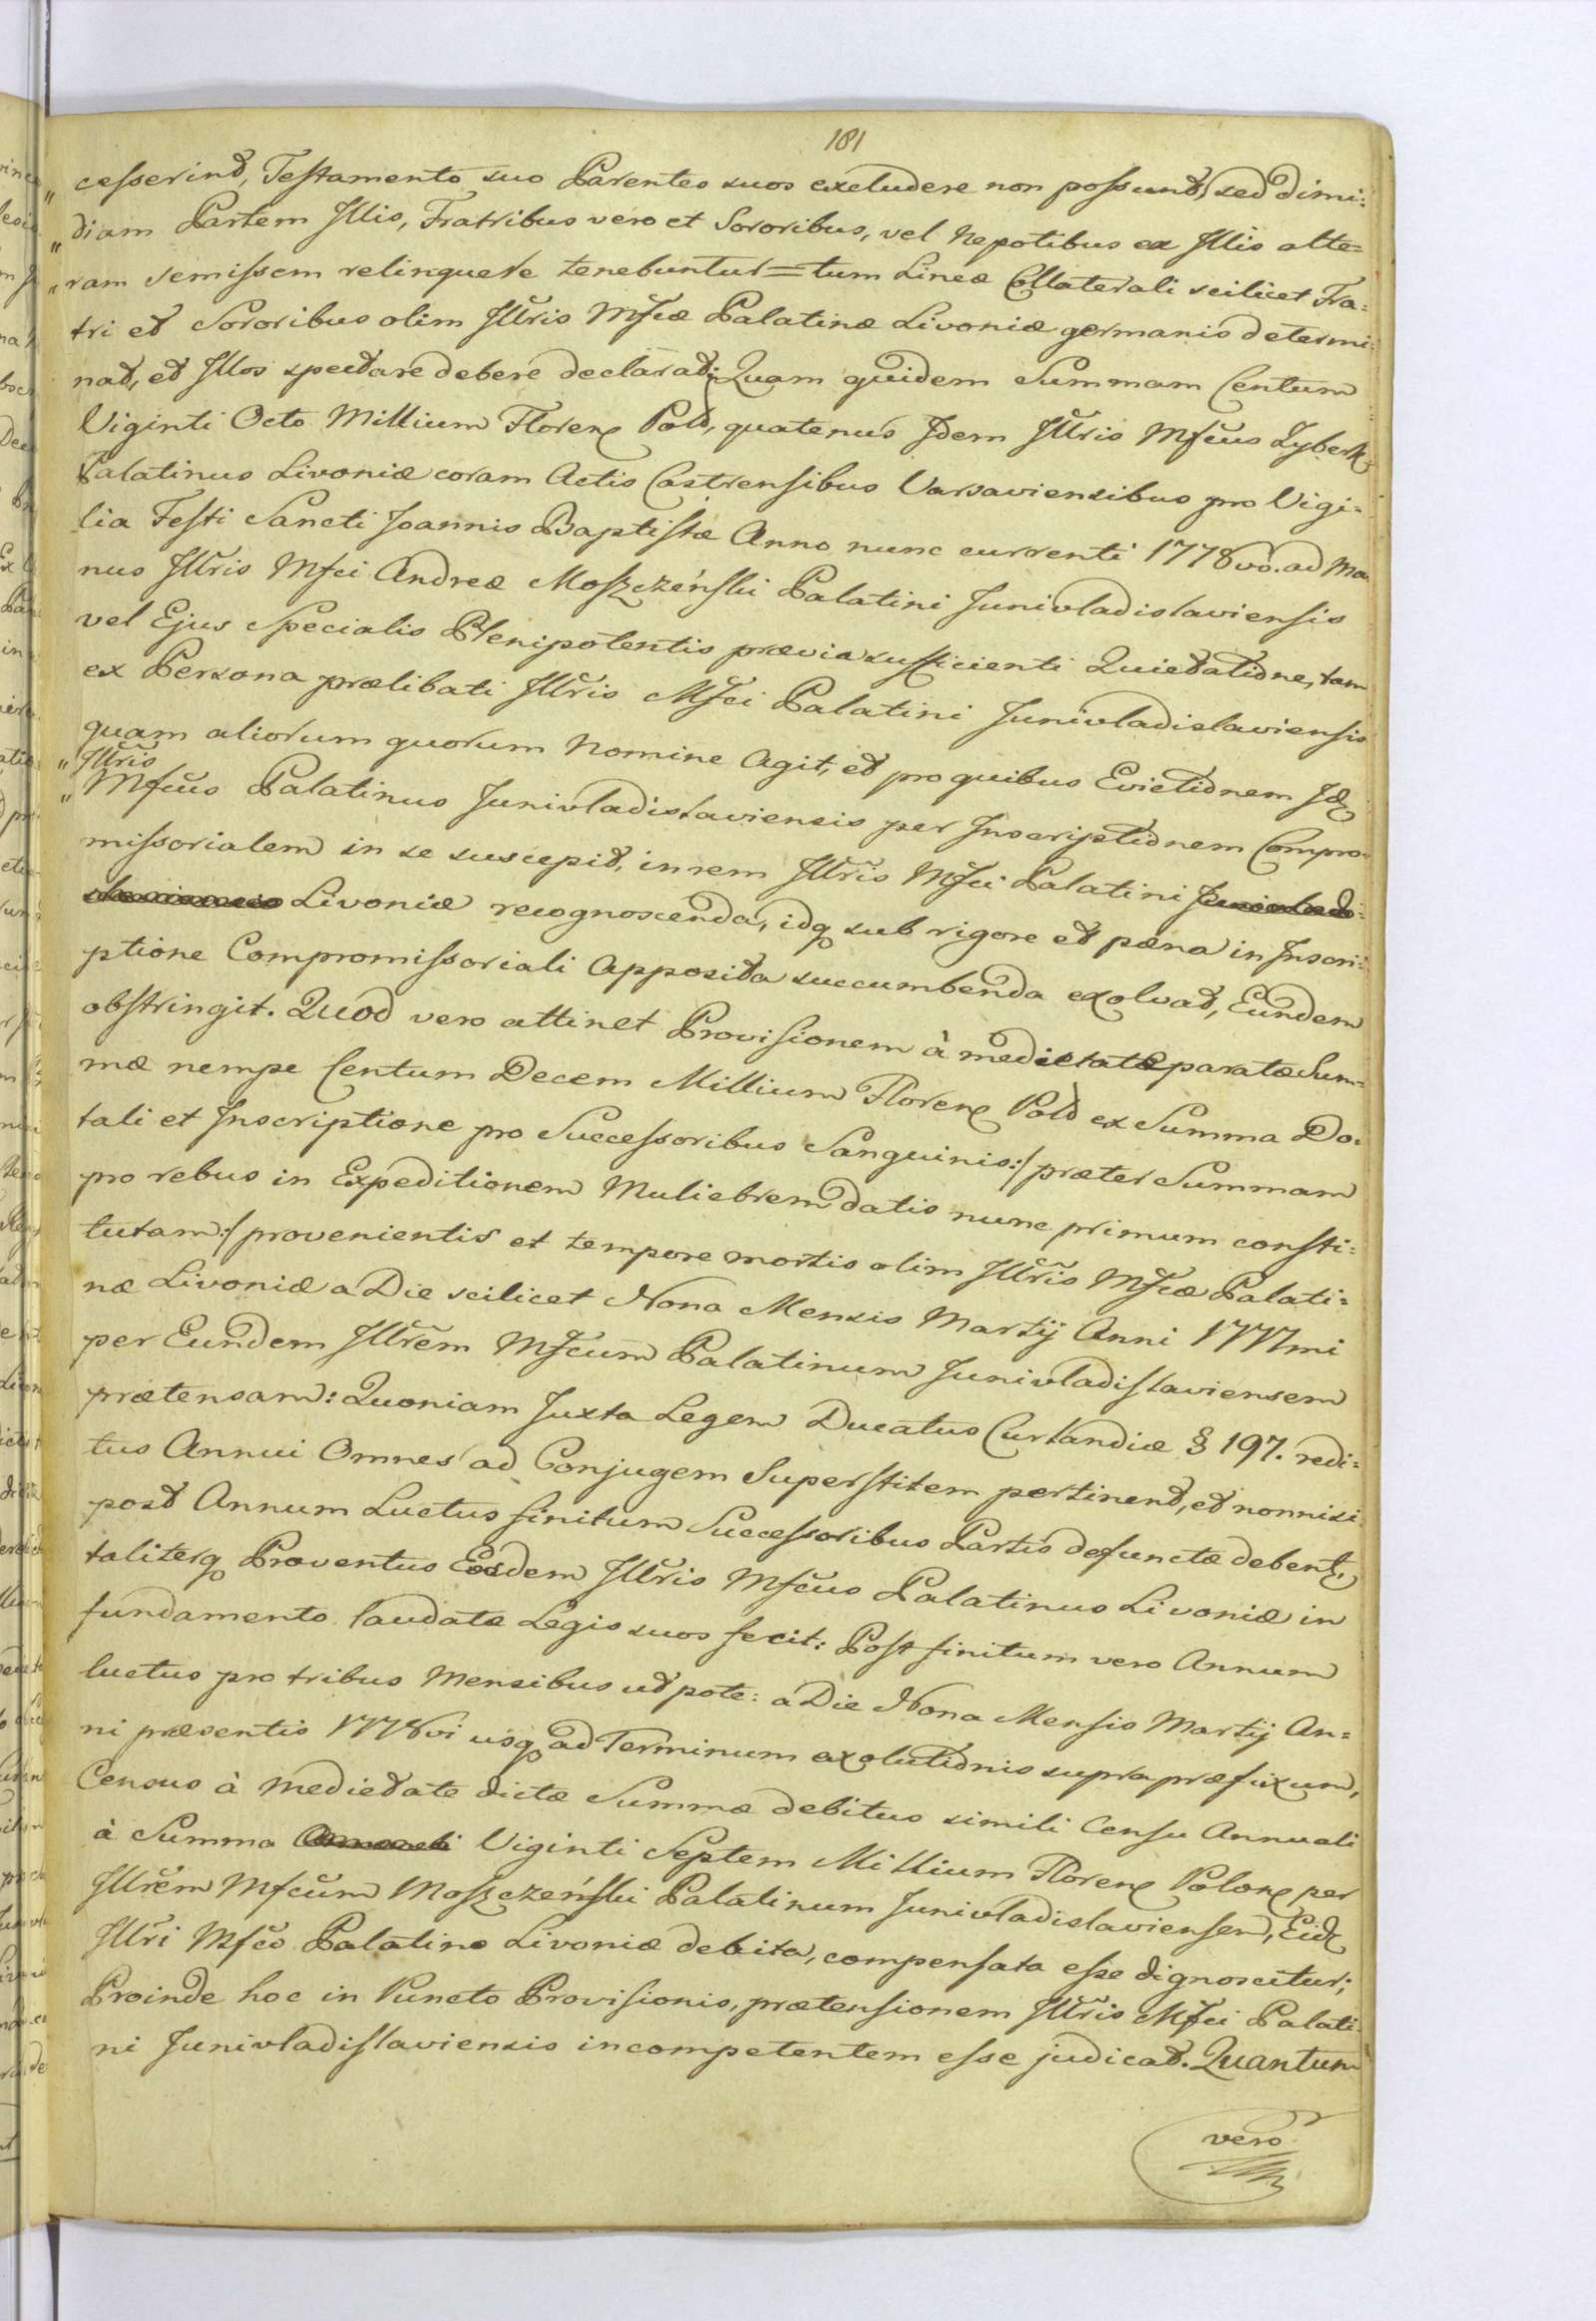 181
„ cesserint, Testamento suo Parentes suos excludere non possunt, sed dimi:
„ diam Partem Illis, Fratribus vero et Sororibus, vel Nepotibus ex Illis alte=
„ ram semissem relinquere tenebuntur = tum Lineæ Collaterali scilicet Fra:
tri et Sororibus olim Jllr̃is Mfcæ Palatinæ Livoniæ germanis determi:
nat, et Illos spectare debere declarat; Quam quidem Summam Centum
Viginti Octo Millium Floren Pold, quatenus Idem Jllr̃is Mfcus Zyberk
Palatinus Livoniæ coram Actis Castrensibus Varsaviensibus pro Vigi=
lia Festi Sancti Joannis Baptistæ Anno nunc currenti 1778vo. ad Ma
nus Jllr̃is Mfci Andreæ Moszczeński Palatini Junivladislaviensis
vel Ejus Specialis Plenipotentis prævia sufficienti Quietatiõne, tam
ex Persona prælibati Jllr̃is Mfci Palatini Junivladislaviensis
quam aliorum quorum Nomine Agit, et pro quibus Evictiõnem Id
„ Jllr̃is
„ Mfcus Palatinus Junivladislaviensis per Inscriptiõnem Compro=
missorialem in se suscepit, in rem Jllr̃is Mfci Palatini
Livoniæ recognoscenda, idq sub rigore et pæna in Inscri:
ptione Compromissoriali Apposita succumbenda exolvat, Eundem
obstringit. Quod vero attinet Provisionem à medietate paratæ Sum=
mæ nempe Centum Decem Millium Floren Pold ex Summa Do=
tali et Inscriptione pro Successoribus Sanguinis :/ præter Summam
pro rebus in Expeditionem Muliebrem datis nunc primum consti:
tutam :/ provenientis et tempore mortis olim Jllr̃is Mfcæ Palati=
næ Livoniæ a Die scilicet Nona Mensis Martij Anni 1777mi
per Eundem Jllr̃em Mfcum Palatinum Junivladislaviensem
prætensam: Quoniam Juxta Legem Ducatus Curlandiæ § 197. redi:
tus Annui Omnes ad Conjugem Superstitem pertinent, et nonnisi
post Annum Luctus finitum Successoribus Partis defunctæ debent,
taliterq Proventus Eosdem Jllr̃is Mfcus Palatinus Livoniæ in
fundamento laudatæ Legis suos fecit: Post finitum vero Annum
luctus pro tribus Mensibus ut pote: a Die Nona Mensis Martij An=
ni præsentis 1778vi usq ad Terminum exolutiõnis supra præfixum,
Census à Medietate dictæ Summæ debitus simili Censu Annuali
à Summa Viginti Septem Millium Floren Polon per
Jllr̃em Mfcum Moszczeński Palatinum Junivladislaviensem, Eid
Jllr̃i Mfco Palatino Livoniæ debita, compensata esse dignoscitur;
Proinde hoc in Puncto Provisionis, prætensionem Jllr̃is Mfci Palati
ni Junivladislaviensis incompetentem esse judicat. Quantum
vero